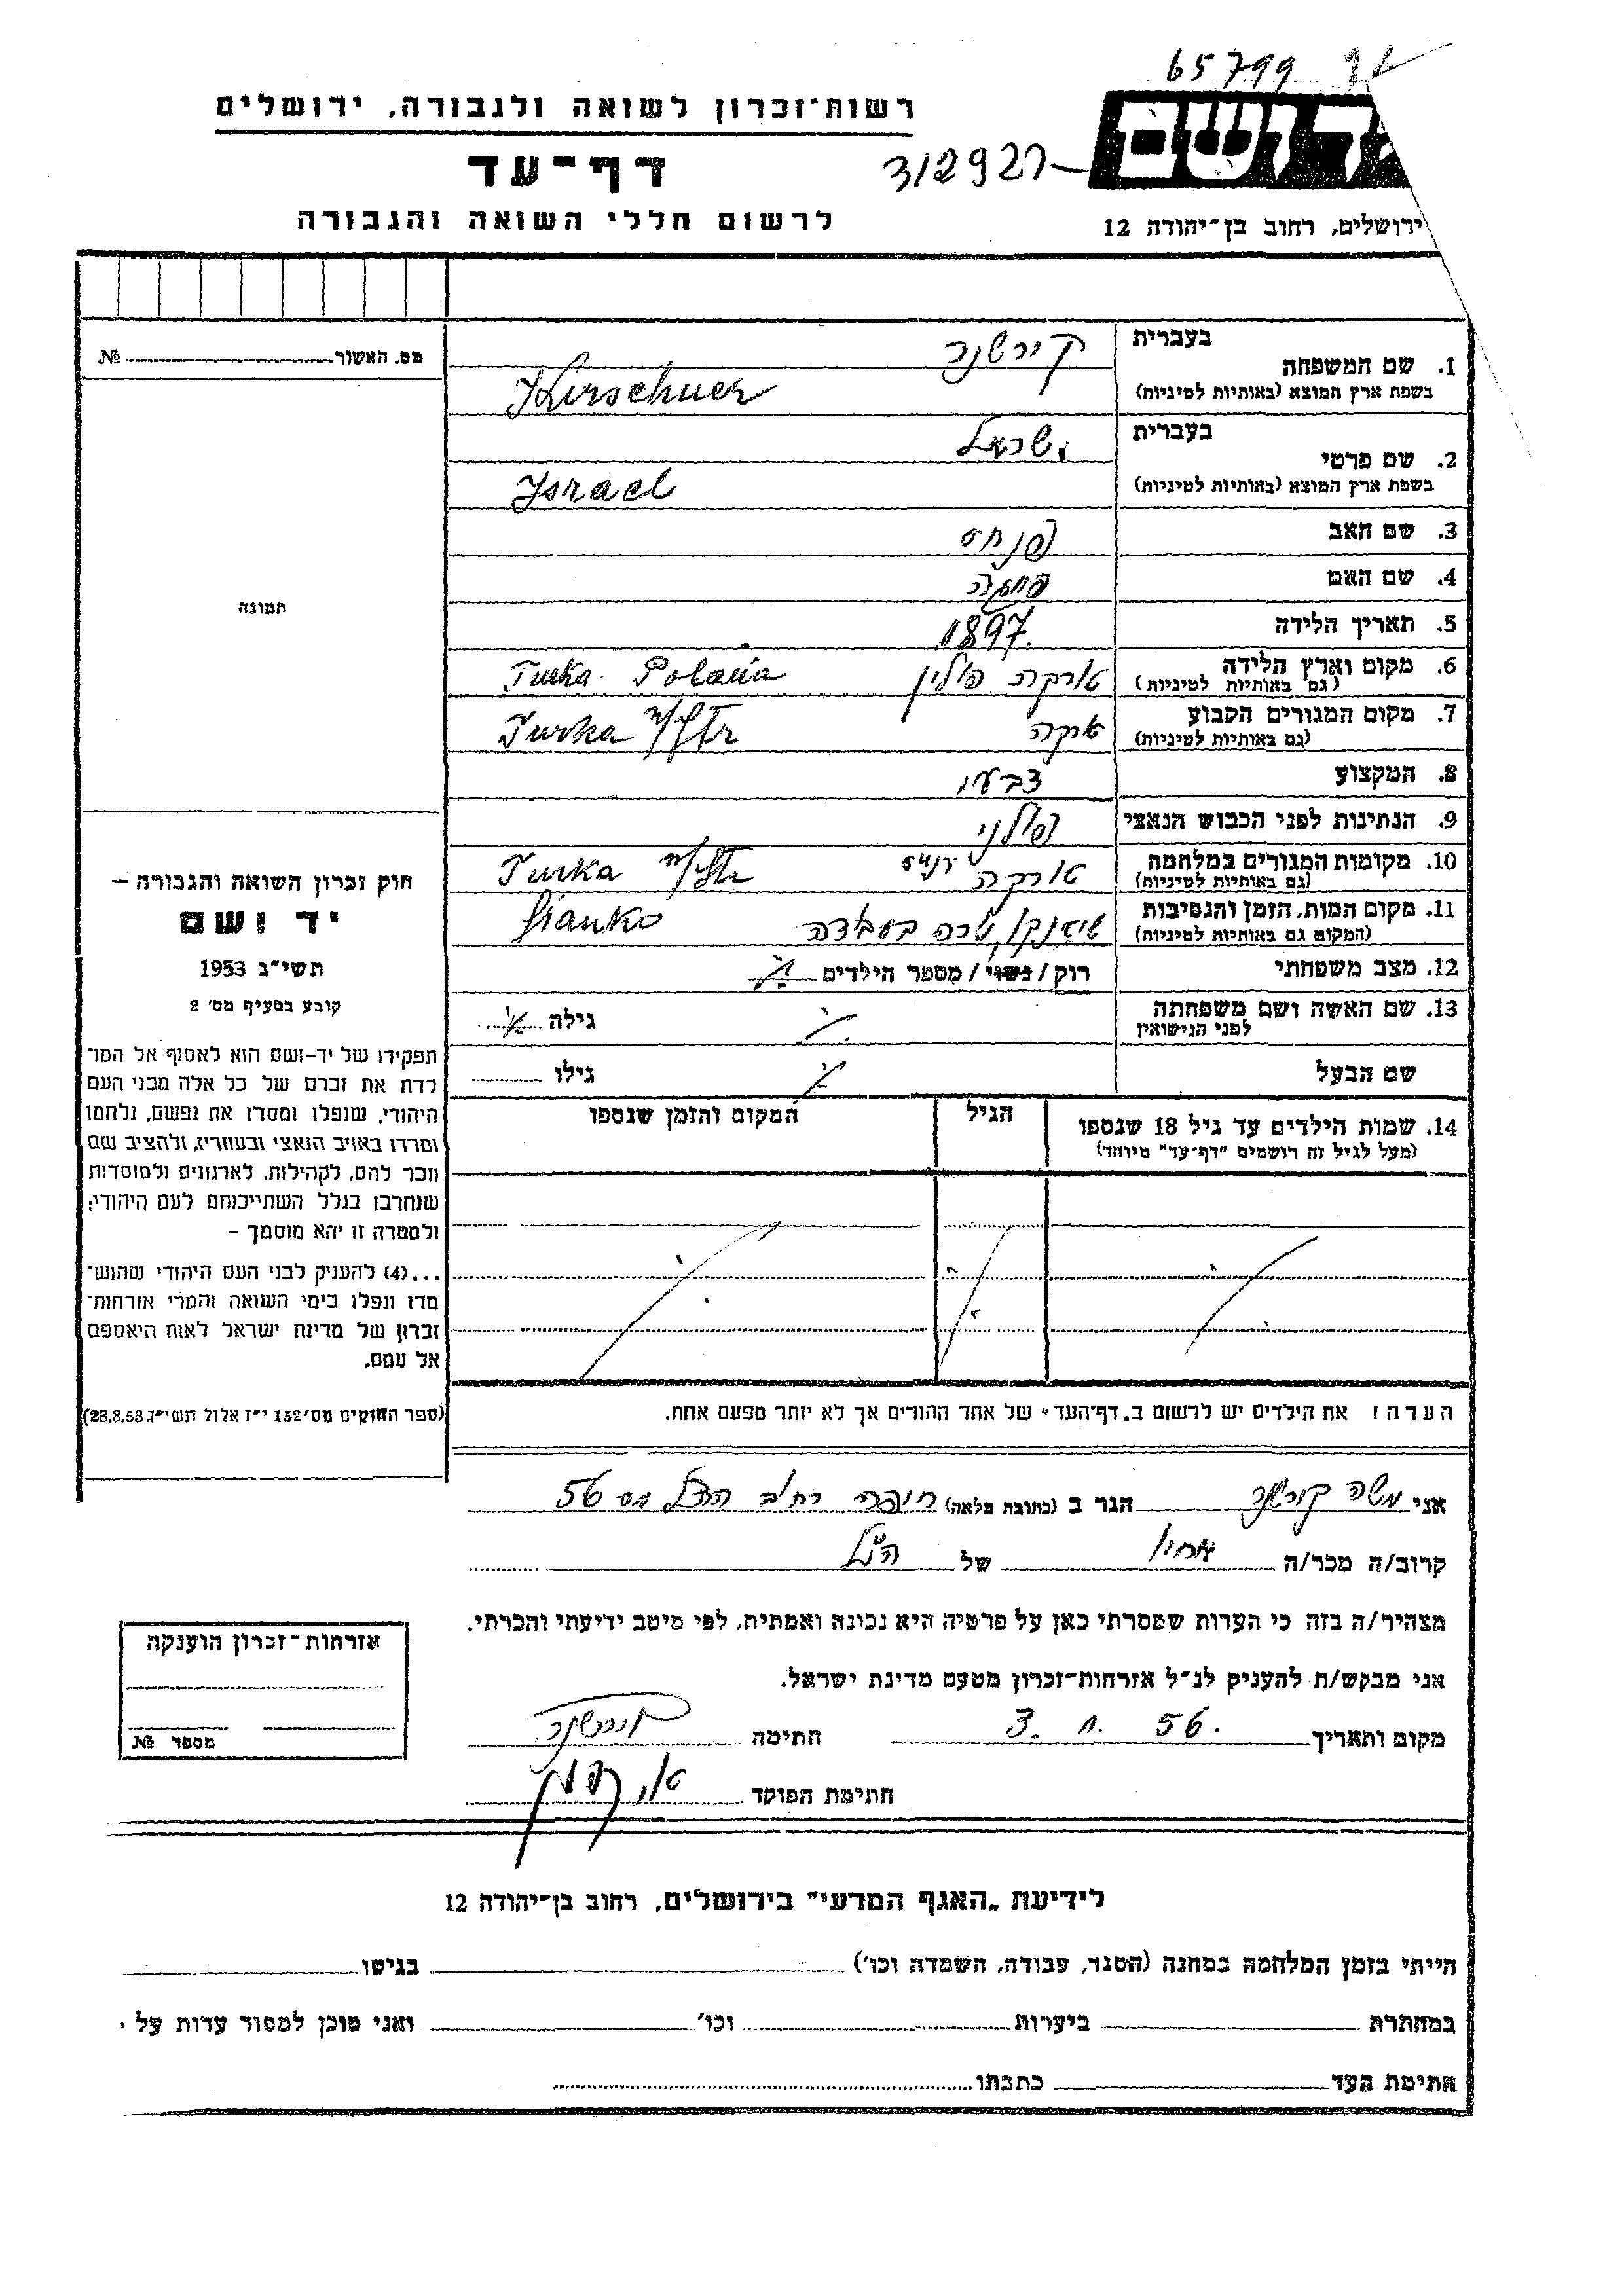 65799
רשות־זכרון לשואה ולגבורה, ירושלים
312927
דף־עד
לרשום חללי השואה והגבורה
ירושלים, רחוב בן־יהודה 12
מס. האשור № 
בעברית קירשנר
1. שם המשפחה
בשפת ארץ המוצא (באותיות לטיניות) Kirschner
בעברית ישראל
2. שם פרטי
בשפת ארץ המוצא (באותיות לטיניות) Israel
3. שם האב פנחס
4. שם האם
5. תאריך הלידה 1897
6. מקום וארץ הלידה טורקה פולין Turka Polania
(גם באותיות לטיניות)
7. מקום המגורים הקבוע טורקה Turka n/Str
(גם באותיות לטיניות)
8. המקצוע צבעי
9. הנתינות לפני הכבוש הנאצי פולני
10. מקומות המגורים במלחמה טורקה Turka n/Str
(גם באותיות לטיניות)
11. מקום המות, הזמן והנסיבות שיאנקי נורה בעבודה Sianko
(המקום גם באותיות לטיניות)
12. מצב משפחתי רוק / נשוי / מספר הילדים
13. שם האשה ושם משפחתה גילה
לפני הנישואין
שם הבעל גילו
14. שמות הילדים עד גיל 18 שנספו הגיל המקום והזמן שנספו
(מעל לגיל זה רושמים "דף־עד" מיוחד)
הערה: את הילדים יש לרשום ב„דף־העד" של אחד ההורים אך לא יותר מפעם אחת.
תמונה
חוק זכרון השואה והגבורה –
יד ושם
תשי"ג 1953
קובע בסעיף מס' 2
תפקידו של יד-ושם הוא לאסוף אל המו־
לדת את זכרם של כל אלה מבני העם
היהודי, שנפלו ומסרו את נפשם, נלחמו
ומרדו באויב הנאצי ובעוזריו, ולהציב שם
וזכר להם, לקהילות, לארגונים ולמוסדות
שנחרבו בגלל השתייכותם לעם היהודי;
ולמטרה זו יהא מוסמך –
...(4) להעניק לבני העם היהודי שהוש־
מדו ונפלו בימי השואה והמרי אזרחות־
זכרון של מדינת ישראל לאות היאספם
אל עמם.
(ספר החוקים מס' 132 י"ז אלול תשי"ג 28.8.53)
אני משה קירשנר הגר ב (כתובת מלאה) חיפה רחוב הרצל מס 56
קרוב/ה מכר/ה אחיו של הנ"ל
מצהיר/ה בזה כי העדות שמסרתי כאן על פרטיה היא נכונה ואמתית, לפי מיטב ידיעתי והכרתי.
אני מבקש/ת להעניק לנ"ל אזרחות־זכרון מטעם מדינת ישראל.
מקום ותאריך 56. חתימה קירשנר
חתימת הפוקד
אזרחות־זכרון הוענקה
מספר №
לידיעת „האגף המדעי" בירושלים, רחוב בן־יהודה 12
הייתי בזמן המלחמה במחנה (הסגר, עבודה, השמדה וכו') בגיטו
במחתרת ביערות וכו' ואני מוכן למסור עדות על
חתימת העד כתבתו